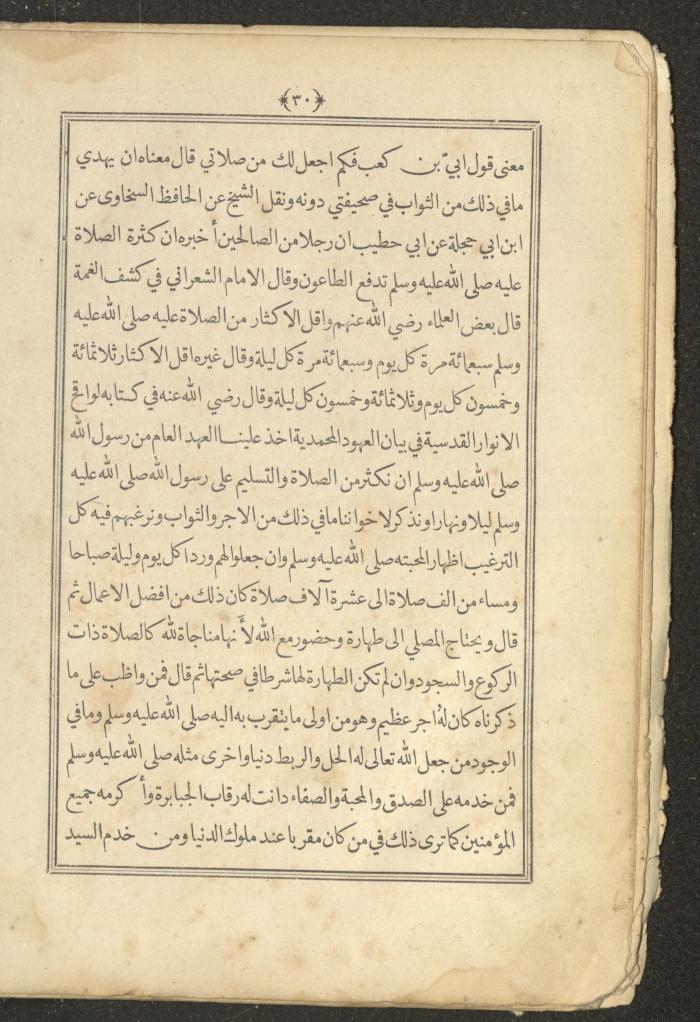 ٣٠
معنى قول ابيّ بن كعب فكم اجعل لك من صلاتي قال معناه ان يهدي
ما في ذلك من الثواب في صحيفتي دونه ونقل الشيخ عن الحافظ السخاوى عن
ابن ابي حجلة عن ابي حطيب ان رجلا من الصالحين أخبره ان كثرة الصلاة
عليه صلى الله عليه وسلم تدفع الطاعون وقال الامام الشعراني في كشف الغمة
قال بعض العلماء رضي الله عنهم واقل الاكثار من الصلاة عليه صلى الله عليه
وسلم سبعمائة مرة كل يوم وسبعمائة مرة كل ليلة وقال غيره اقل الاكثار ثلاثمائة
وخمسون كل يوم وثلاثمائة وخمسون كل ليلة وقال رضي الله عنه في كتابه لواقح
الانوار القدسية في بيان العهود المحمدية اخذ علينا العهد العام من رسول الله
صلى الله عليه وسلم ان نكثر من الصلاة والتسليم على رسول الله صلى الله عليه
وسلم ليلا ونهارا ونذكر لاخواننا ما في ذلك من الاجر والثواب ونرغبهم فيه كل
الترغيب اظهار المحبته صلى الله عليه وسلم وان جعلوا لهم وردا كل يوم وليلة صباحا
ومساء من الف صلاة الى عشرة آلاف صلاة كان ذلك من افضل الاعمال ثم
قال ويحتاج المصلي الى طهارة وحضور مع الله لأنها مناجاة لله كالصلاة ذات
الركوع والسجود وان لم تكن الطهارة لها شرطا في صحتها ثم قال فمن واظب على ما
ذكرناه كان لهُ اجر عظيم وهو من اولى ما يتقرب به اليه صلى الله عليه وسلم وما في
الوجود من جعل الله تعالى له الحل والربط دنيا واخرى مثله صلى الله عليه وسلم
فمن خدمه على الصدق والمحبة والصفاء دانت له رقاب الجبابرة وأكرمه جميع
المؤمنين كما ترى ذلك في من كان مقربا عند ملوك الدنيا ومن خدم السيد